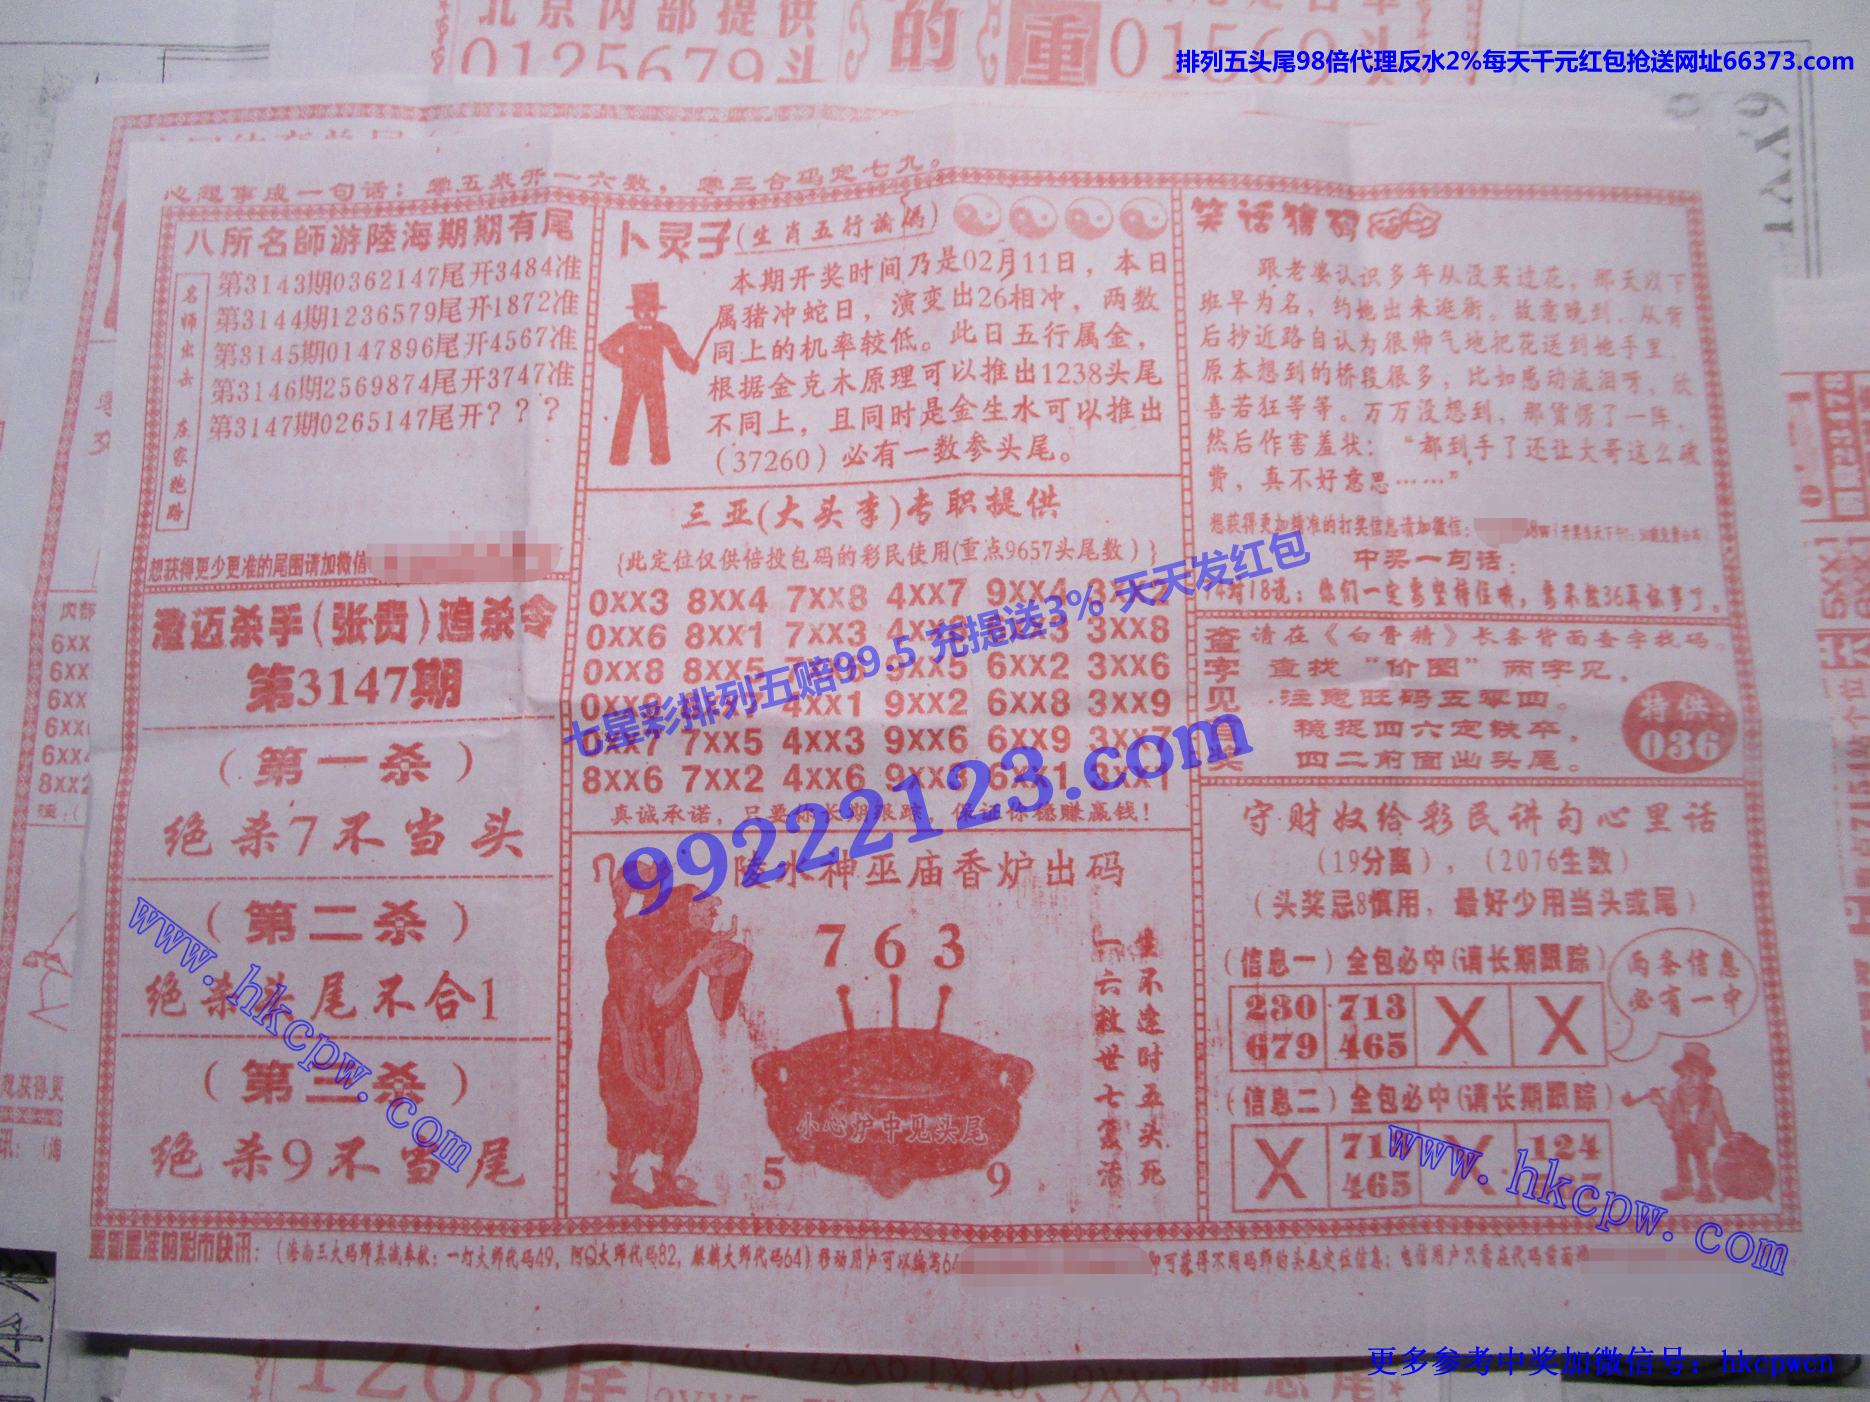 北京内部提供
0125679头
的
重
01569头
排列五头尾98倍代理反水2%每天千元红包抢送网址66373.com
心想事成一句话：零五来开一六数，零三合码定七九。
八所名師游陸海期期有尾
名师出击 庄家跑路
第3143期0362147尾开3484准
第3144期1236579尾开1872准
第3145期0147896尾开4567准
第3146期2569874尾开3747准
第3147期0265147尾开？？？
想获得更少更准的尾围请加微信
澄迈杀手(张贵)追杀令
第3147期
（第一杀）
绝杀7不当头
（第二杀）
绝杀头尾不合1
（第三杀）
绝杀9不当尾
卜灵子(生肖五行論碼)
本期开奖时间乃是02月11日，本日
属猪冲蛇日，演变出26相冲，两数
同上的机率较低。此日五行属金，
根据金克木原理可以推出1238头尾
不同上，且同时是金生水可以推出
（37260）必有一数参头尾。
三亚(大头李)专职提供
{此定位仅供倍投包码的彩民使用(重点9657头尾数)}
0XX3 8XX4 7XX8 4XX7 9XX4 3XX2
0XX6 8XX1 7XX3 3XX8
0XX8 8XX5 6XX2 3XX6
4XX1 9XX2 6XX8 3XX9
0XX7 7XX5 4XX3 9XX6 6XX9 3XX7
8XX6 7XX2 4XX6 9XX3 6XX1 3XX1
真诚承诺，只要你长期跟踪，保证你稳赚赢钱！
七星彩排列五赔99.5 充提送3% 天天发红包
99222123.com
陵水神巫庙香炉出码
7 6 3
小心炉中见头尾
5 9
生不逢时五头死
一六救世七复活
笑话猜码
跟老婆认识多年从没买过花，那天以下
班早为名，约她出来逛街。故意晚到，从背
后抄近路自认为很帅气地把花送到她手里，
原本想到的桥段很多，比如感动流泪呀，欣
喜若狂等等。万万没想到，那货愣了一阵，
然后作害羞状：“都到手了还让大哥这么破
费，真不好意思……”
想获得更加精准的打奖信息请加微信：
中奖一句话：
74对18说：你们一定要坚持住哦，
查字见真奖
请在《白骨精》长条背面查字找码。
查找“价图”两字见，
注意旺码五零四。
稳捉四六定铁卒，
四二前面出头尾。
特供：
036
守财奴给彩民讲句心里话
（19分离），（2076生数）
（头奖忌8慎用，最好少用当头或尾）
（信息一）全包必中(请长期跟踪)
230 713 X X
679 465
两条信息
必有一中
（信息二）全包必中(请长期跟踪)
X 71 X 124
465
www.hkcpw.com
www.hkcpw.com
最新最准的彩市快讯：（海南三大码师真诚奉献：一灯大师代码49，阿Q大师代码82，麒麟大师代码64）移动用户可以编写64
即可获得不同码师的头尾定位信息；电信用户只需在代码前面
更多参考中奖加微信号：hkcpwcn
1268尾